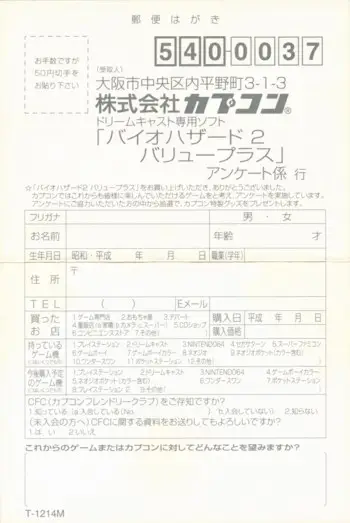 郵便はがき
お手数ですが
50円切手を
お貼り下さい
540-0037
(受取人)
大阪市中央区内平野町3-1-3
株式会社カプコン®
ドリームキャスト専用ソフト
「バイオハザード2
バリュープラス」
アンケート係 行
☆「バイオハザード2 バリュープラス」をお買い上げいただき、ありがとうございました。
カプコンではこれからも皆様に楽しんでいただけるゲームをと考え、アンケートを実施しています。
アンケートにご協力いただいた方の中から抽選で、カプコン特製グッズをプレゼントします。
フリガナ 男・女
お名前 年齢 才
生年月日 昭和・平成 年 月 日 職業(学年)
住所 〒
TEL ( ) Eメール
買った
お店
1.ゲーム専門店 2.おもちゃ屋 3.デパート
5.CDショップ
6.コンビニエンスストア 7.その他( )
購入日 平成 年 月 日
購入価格
持っている
ゲーム機
1.プレイステーション 2.ドリームキャスト 3.NINTENDO64 4.セガサターン 5.スーパーファミコン
6.ゲームボーイ 7.ゲームボーイカラー 8.ネオジオ 9.ネオジオポケット(カラー含む)
10.ワンダースワン 11.ポケットステーション 12.その他( )
今後購入予定
のゲーム機
1.プレイステーション 2.ドリームキャスト 3.NINTENDO64 4.ゲームボーイカラー
5.ネオジオポケット(カラー含む) 6.ワンダースワン 7.ポケットステーション
8.プレイステーション2 9.その他( )
CFC(カプコンフレンドリークラブ)をご存知ですか?
1.知っている(a.入会している(No. ) b.入会していない) 2.知らない
(未入会の方へ)CFCに関する資料をお送りしてもよろしいですか?
1.はい 2.いいえ
これからのゲームまたはカプコンに対してどんなことを望みますか?
T-1214M